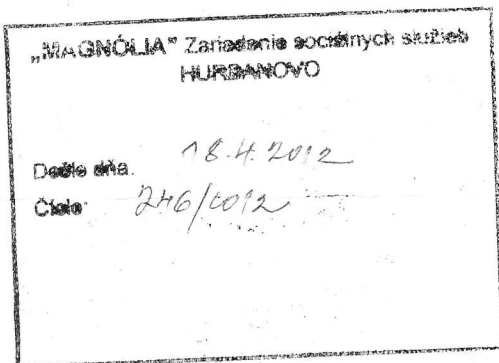 „MAGNÓLIA” Zariadenie sociálnych služieb
HURBANOVO
Došlo dňa. 18.4.2012
Číslo: 246/2012